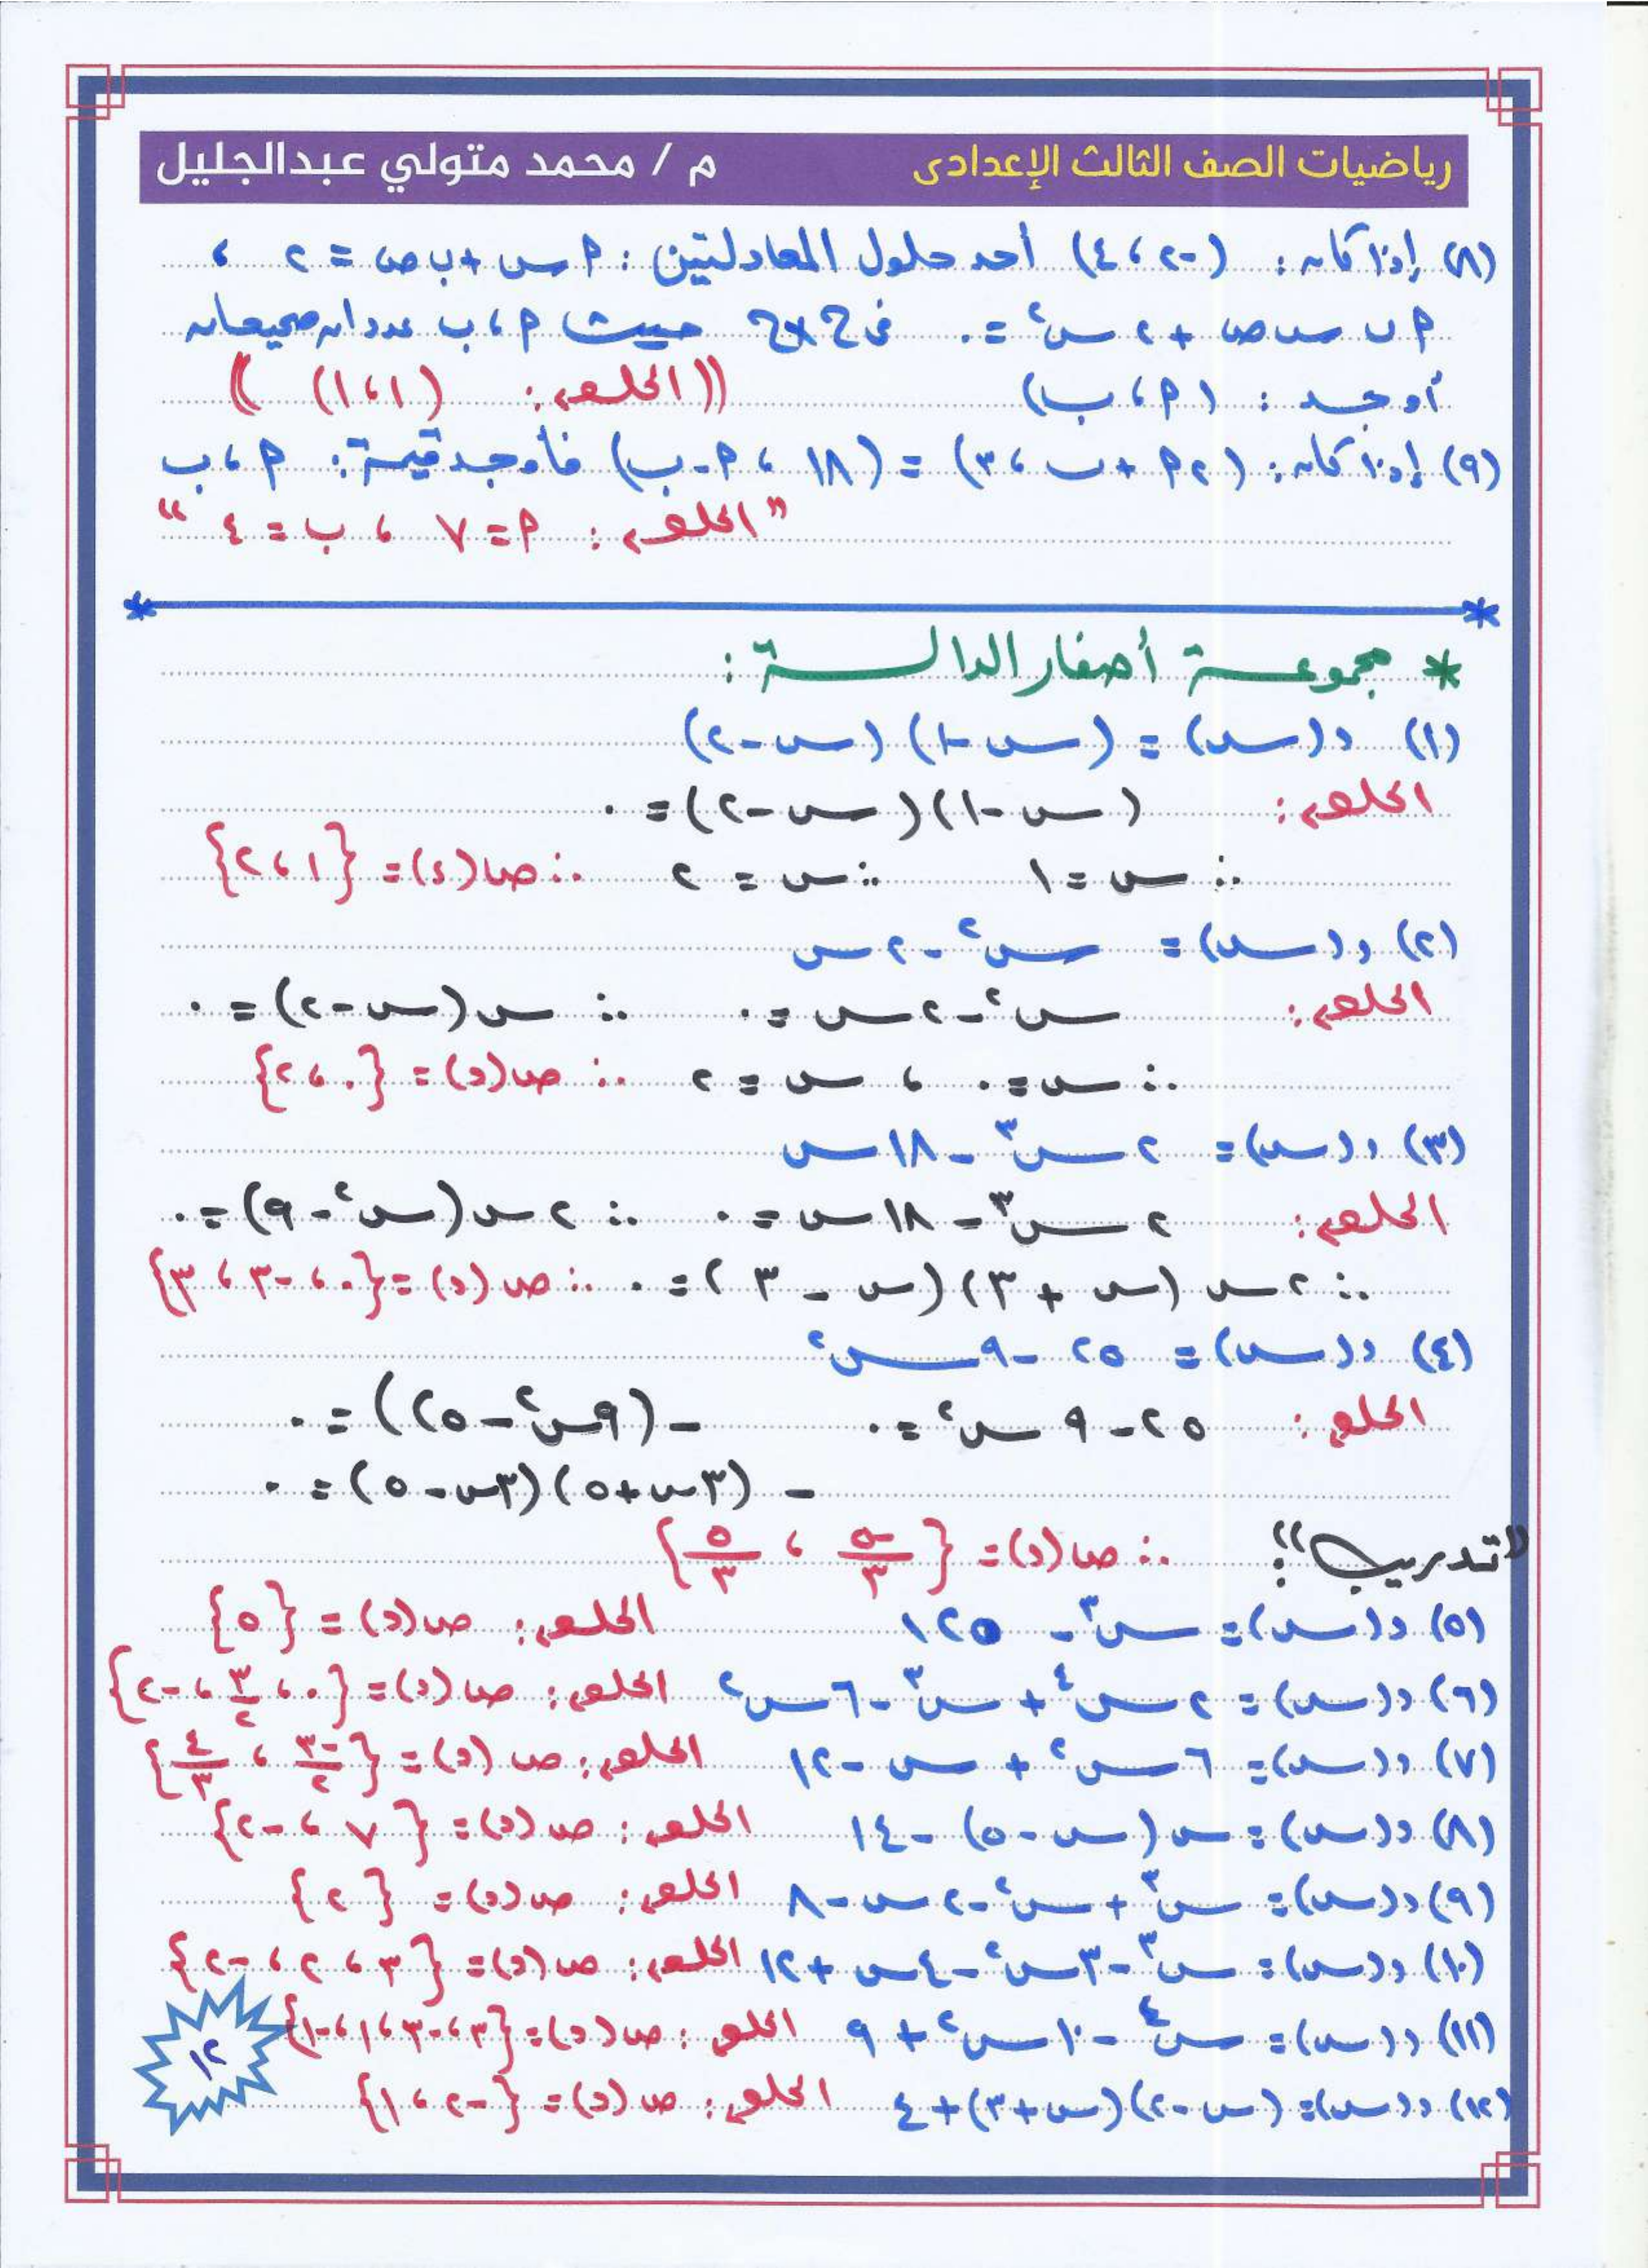 رياضيات الصف الثالث الإعدادى م / محمد متولي عبدالجليل
(٨) إذا كان : (-٢ ، ٤) أحد حلول المعادلتين : أ س + ب ص = ٢ ،
أ ب س ص + ٢ س² = ٠ فى ح × ح حيث أ ، ب عددان صحيحان
أوجد : (أ ، ب) ((الحل : (١ ، ١) ))
(٩) إذا كان : (٢أ + ب ، ٣) = (١٨ ، أ - ب) فأوجد قيمة : أ ، ب
"الحل : أ = ٧ ، ب = ٤ "
* مجموعة أصفار الدالة :
(١) د(س) = (س - ١) (س - ٢)
الحل : (س - ١) (س - ٢) = ٠
∴ س = ١ ∴ س = ٢ ∴ ص(د) = {١ ، ٢}
(٢) د(س) = س² - ٢س
الحل : س² - ٢س = ٠ ∴ س(س - ٢) = ٠
∴ س = ٠ ، س = ٢ ∴ ص(د) = {٠ ، ٢}
(٣) د(س) = ٢س³ - ١٨س
الحل : ٢س³ - ١٨س = ٠ ∴ ٢س(س² - ٩) = ٠
∴ ٢س (س + ٣) (س - ٣) = ٠ ∴ ص(د) = {٠ ، -٣ ، ٣}
(٤) د(س) = ٢٥ - ٩س²
الحل : ٢٥ - ٩س² = ٠ -(٩س² - ٢٥) = ٠
- (٣س + ٥) (٣س - ٥) = ٠
"تدريب" : ∴ ص(د) = {-٥/٣ ، ٥/٣}
(٥) د(س) = س³ - ١٢٥ الحل : ص(د) = {٥}
(٦) د(س) = ٢س⁴ + س³ - ٦س² الحل : ص(د) = {٠ ، ٣/٢ ، -٢}
(٧) د(س) = ٦س² + س - ١٢ الحل : ص(د) = {-٣/٢ ، ٤/٣}
(٨) د(س) = س(س - ٥) - ١٤ الحل : ص(د) = {٧ ، -٢}
(٩) د(س) = س³ + س² - ٢س - ٨ الحل : ص(د) = {٢}
(١٠) د(س) = س³ - ٣س² - ٤س + ١٢ الحل : ص(د) = {٣ ، ٢ ، -٢}
(١١) د(س) = س⁴ - ١٠س² + ٩ الحل : ص(د) = {٣ ، -٣ ، ١ ، -١}
(١٢) د(س) = (س - ٢) (س + ٣) + ٤ الحل : ص(د) = {-٢ ، ١}
١٢